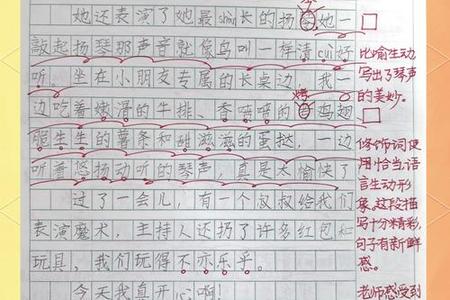 她还表演了她最shàn长的扬琴,她一
敲起扬琴那声音就像鸟叫一样清cuì好
听。坐在小朋友专属的长桌边,我一
边吃着嫩滑的牛排、香喷喷的烤鸡翅
脆生生的薯条和甜滋滋的蛋挞,一边
听着悠扬动听的琴声,真是太愉快了
过了一会儿,有一个叔叔给我们
表演魔术,主持人还扔了许多红包和
玩具,我们玩得不亦乐乎。
今天我真开心啊!
比喻生动
写出了琴声
的美妙。
修饰词使
用恰当,语
言生动形
象,这段描
写十分精彩,
句子有新鲜
感。
老师感受到